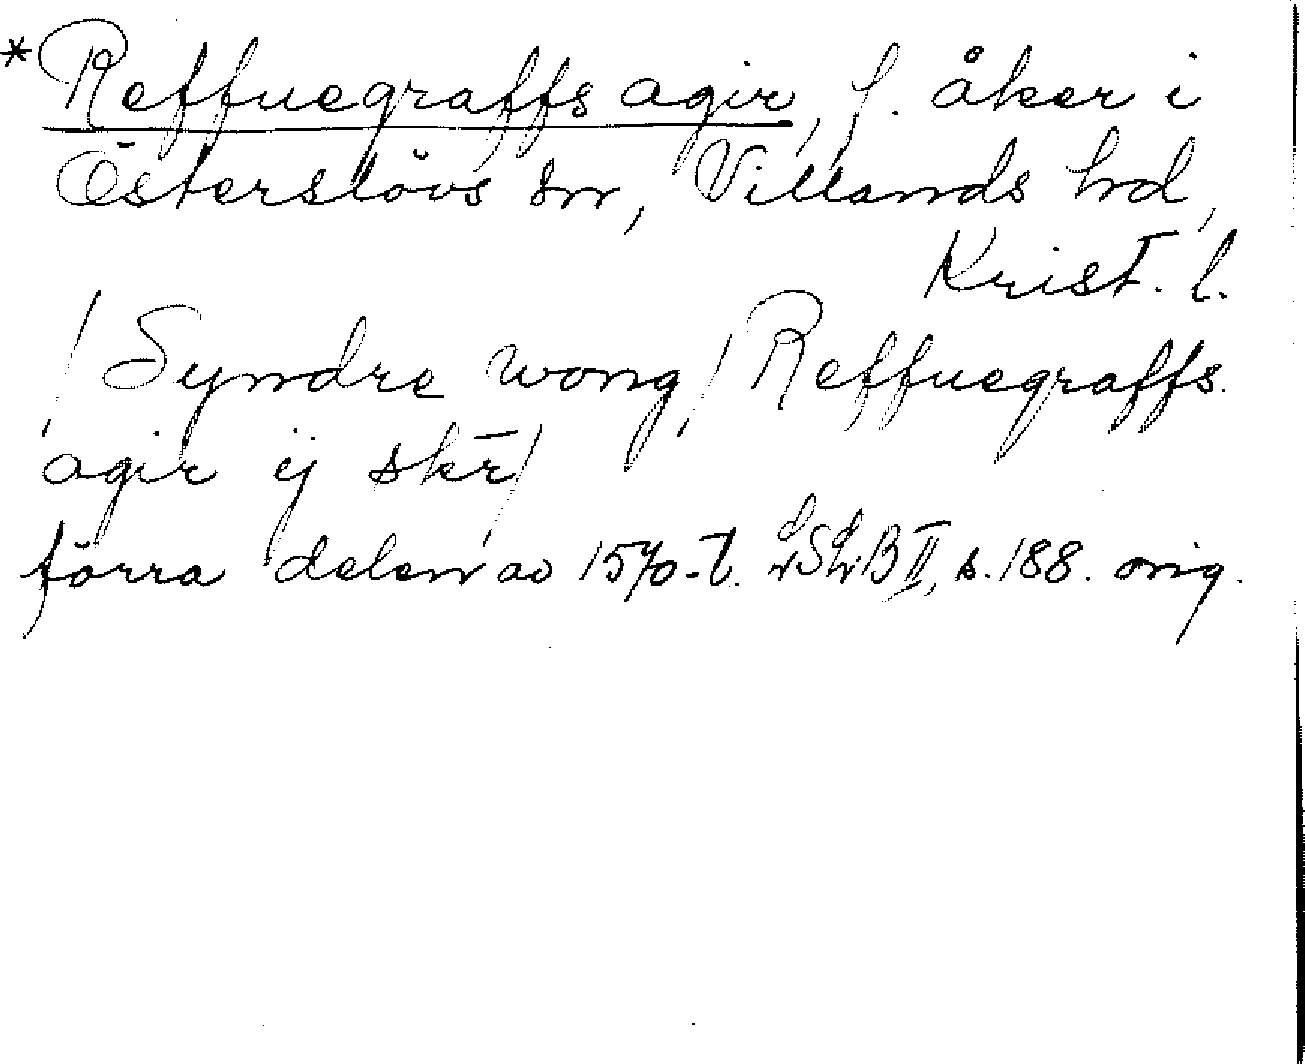 *Reffuegraffs agir, f. åker i
Österslövs sn, Villands hd,
Krist. l.
/Syndre wong/ Reffuegraffs
agir ij skr̄/
förra delen av 1570-t. LSLB II, s. 188. orig.